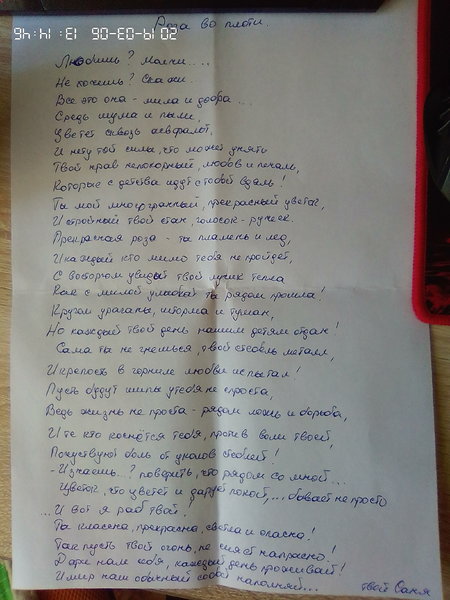 Роза во плоти.
Любишь? Молчи....
Не хочешь? Скажи.
Все это она - мила и добра...
Средь шума и пыли,
Цветет сквозь асфальт,
И нету той силы, что может унять
Твой нрав непокорный, любовь и печаль,
Которые с детства идут с тобой вдаль!
Ты мой многогранный, прекрасный цветок,
И стройный твой стан, голосок - ручеек.
Прекрасная роза - ты пламень и лед,
И каждый кто мимо тебя не пройдет,
С востором увидит твой лучик тепла
Как с милой улыбкой ты рядом прошла!
Кругом ураганы, шторма и туман,
Но каждый твой день нашим детям отдан!
Сама ты не гнешься, твой стебель металл,
И крепость в горниле любви испытал!
Пусть будут шипы у тебя не спроста,
Ведь жизнь не проста - рядом ложь и борьба,
И те кто коснётся тебя, против воли твоей,
Почувствуют боль от уколов стеблей!
- И знаешь..? поверить, что рядом со мной...
Цветок, что цветет и дарует покой,... бывает не просто
... И вот я раб твой!
Ты классна, прекрасна, светла и опасна!
Так пусть твой огонь, не сияет напрасно!
Даже нам себя, каждый день проживай!
И мир наш обычный собой наполняй...
твой Саня